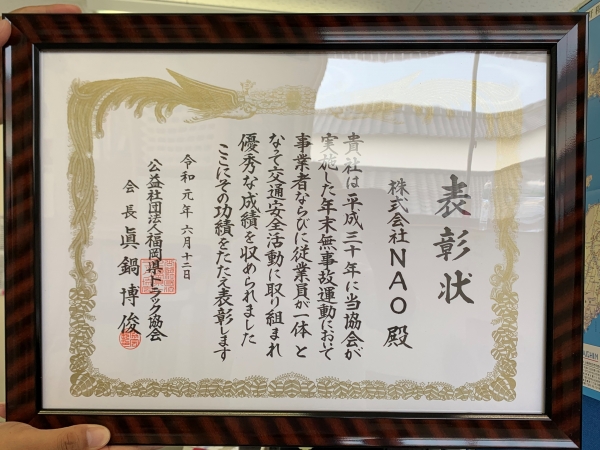 表彰状
株式会社NAO殿
貴社は平成三十年に当協会が
実施した年末無事故運動において
事業者ならびに従業員が一体と
なって交通安全活動に取り組まれ
優秀な成績を収められました
ここにその功績をたたえ表彰します
令和元年六月十二日
公益社団法人福岡県トラック協会
会長眞鍋博俊